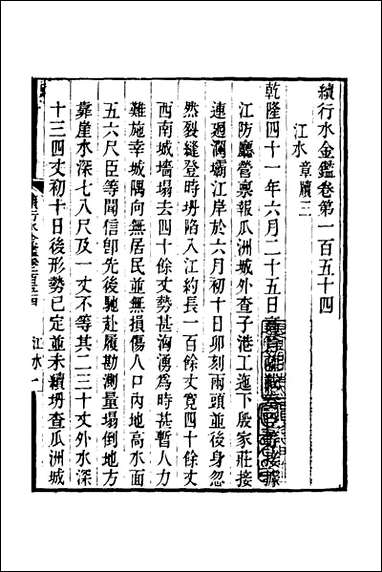 續行水金鑑卷第一百五十四
江水 章牘三
乾隆四十一年六月二十五日 接據
江防廳營察報瓜洲城外查子港工迤下殷家莊接
連迴瀾壩江岸於六月初十日卯刻兩頭並後身忽
然裂縫登時坍陷入江約長一百餘丈寬四十餘丈
西南城墻塲去四十餘丈勢甚洶湧為時甚暫人力
難施幸城隅向無居民並無損傷人口內地高水面
五六尺臣等聞信卽先後馳赴履勘測量塲倒地方
靠崖水深七八尺及一丈不等其二三十丈外水深
十三四丈初十日後形勢已定並未續坍查瓜洲城
江水 一